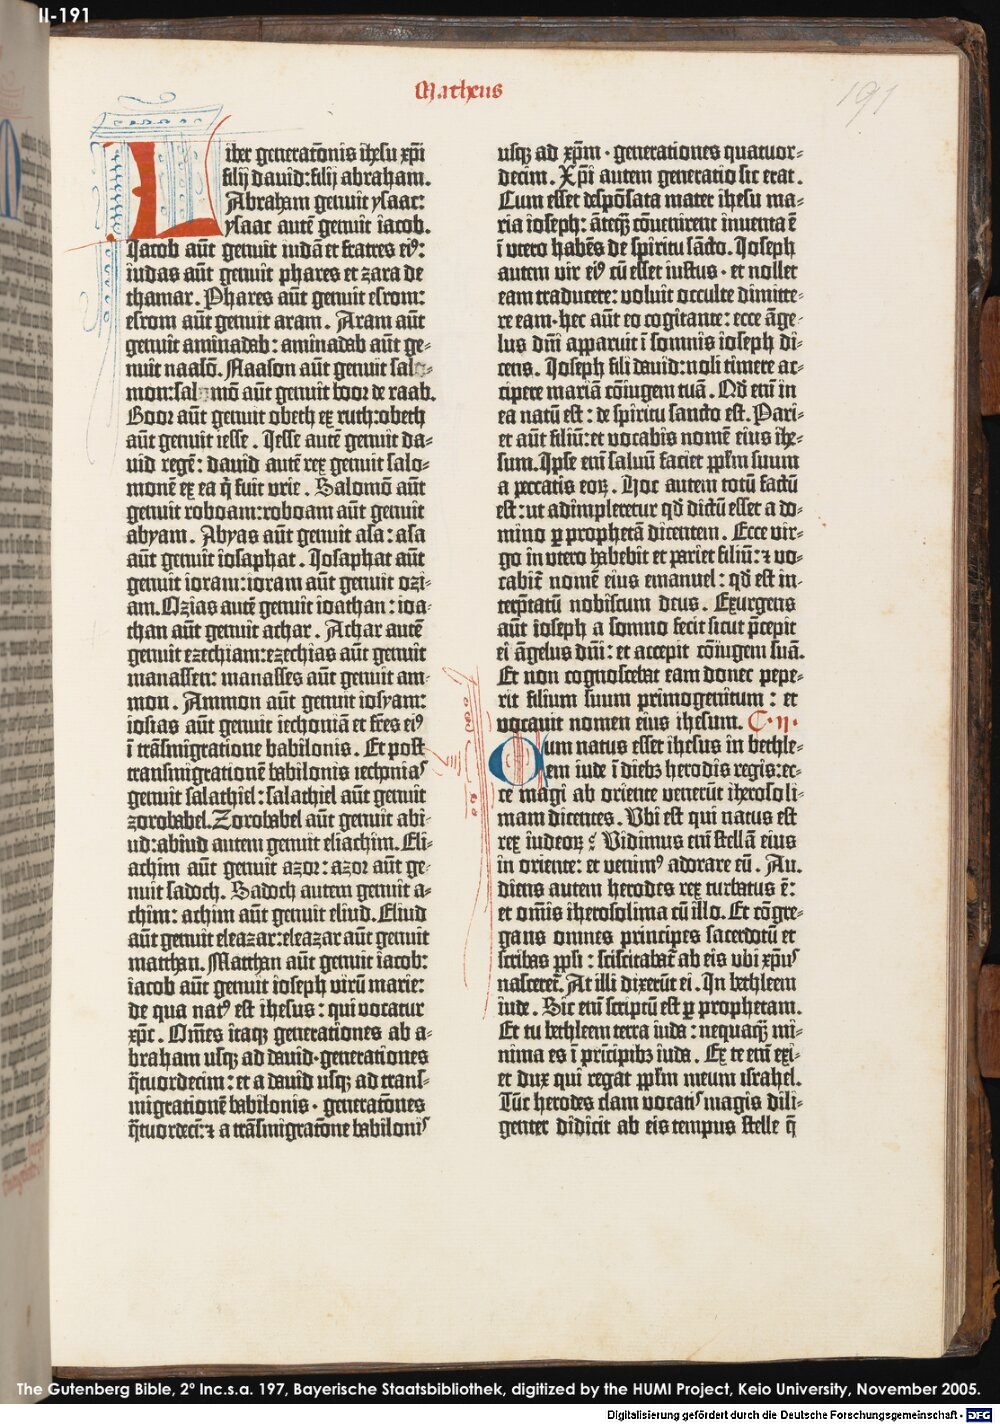 II-191
Matheus
191
Liber generatõnis ihesu xp̃i
filij dauid: filij abraham.
Abraham genuit ysaac:
ysaac autẽ genuit iacob.
Iacob aũt genuit iudã et fratres eiꝰ:
iudas aũt genuit phares et zara de
thamar. Phares aũt genuit esrom:
esrom aũt genuit aram. Aram aũt
genuit aminadab: aminadab aũt ge-
nuit naasõ. Naason aũt genuit sal
mon: sal mõ aũt genuit booz de raab.
Booz aũt genuit obeth ex ruth: obeth
aũt genuit iesse. Iesse autẽ genuit da-
uid regẽ: dauid autẽ rex genuit salo-
monẽ ex ea q̃ fuit vrie. Salomõ aũt
genuit roboam: roboam aũt genuit
abyam. Abyas aũt genuit asa: asa
aũt genuit iosaphat. Iosaphat aũt
genuit ioram: ioram aũt genuit ozi-
am. Ozias autẽ genuit ioathan: ioa-
than aũt genuit achaz. Achaz autẽ
genuit ezechiam: ezechias aũt genuit
manassen: manasses aũt genuit am-
mon. Ammon aũt genuit iosyam:
iosias aũt genuit iechoniã et fr̃es eiꝰ
ĩ trãsmigratione babilonis. Et post
transmigrationẽ babilonis iechonias
genuit salathiel: salathiel aũt genuit
zorobabel. Zorobabel aũt genuit abi-
ud: abiud autem genuit eliachim. Eli-
achim aũt genuit azor: azor aũt ge-
nuit sadoch. Sadoch autem genuit a-
chim: achim aũt genuit eliud. Eliud
aũt genuit eleazar: eleazar aũt genuit
matthan. Matthan aũt genuit iacob:
iacob aũt genuit ioseph virũ marie:
de qua natꝰ est ihesus: qui vocatur
xp̃c. Om̃es itaqꝫ generationes ab a-
braham usqꝫ ad dauid · generationes
q̃tuordecim: et a dauid usqꝫ ad trans-
migrationẽ babilonis · generatõnes
q̃tuordecĩ: ⁊ a trãsmigratõne babilonis
usqꝫ ad xp̃m · generationes quatuor-
decim. Xp̃i autem generatio sic erat.
Cum esset despõsata mater ihesu ma-
ria ioseph: ãteqꝫ̃ cõuenirent inuenta ẽ
ĩ vtero habẽs de spiritu sãcto. Ioseph
autem vir eiꝰ cũ esset iustus · et nollet
eam traducere: voluit occulte dimitte-
re eam · hec aũt eo cogitante: ecce ãge-
lus dñi apparuit ĩ somnis ioseph di-
cens. Ioseph fili dauid: noli timere ac-
cipere mariã cõiugem tuã. Qđ enĩ in
ea natũ est: de spiritu sancto est. Pari-
et aũt filiũ: et vocabis nomẽ eius ihe-
sum. Ipse enĩ saluũ faciet pp̃lm suum
a peccatis eoꝝ. Hoc autem totũ factũ
est: ut adimpleretur qđ dictũ esset a do-
mino ꝑ prophetã dicentem. Ecce vir-
go in vtero habebit et pariet filiũ: ⁊ vo-
cabit̃ nomẽ eius emanuel: qđ est in-
terp̃tatũ nobiscum deus. Exurgens
aũt ioseph a somno fecit sicut p̃cepit
ei ãgelus dñi: et accepit cõiugem suã.
Et non cognoscebat eam donec pepe-
rit filium suum primogenitum: et
vocauit nomen eius ihesum. C · ij ·
Cum natus esset ihesus in bethle-
em iude ĩ diebꝫ herodis regis: ec-
ce magi ab oriente venerũt iherosoli-
mam dicentes. Vbi est qui natus est
rex iudeoꝝ? Vidimus enĩ stellã eius
in oriente: et venimꝰ adorare eũ. Au-
diens autem herodes rex turbatus ẽ:
et om̃is iherosolima cũ illo. Et cõgre-
gans omnes principes sacerdotũ et
scribas pp̃li: sciscitabat̃ ab eis vbi xp̃us
nasceret̃. At illi dixerũt ei. In bethleem
iude. Sic enĩ scriptũ est ꝑ prophetam.
Et tu bethleem terra iuda: nequaqꝫ̃ mi-
nima es ĩ prĩcipibꝫ iuda. Ex te enĩ exi-
et dux qui regat pp̃lm meum israhel.
Tũc herodes clam vocatis magis dili-
genter didicit ab eis tempus stelle q̃
The Gutenberg Bible, 2° Inc.s.a. 197, Bayerische Staatsbibliothek, digitized by the HUMI Project, Keio University, November 2005.
Digitalisierung gefördert durch die Deutsche Forschungsgemeinschaft - DFG